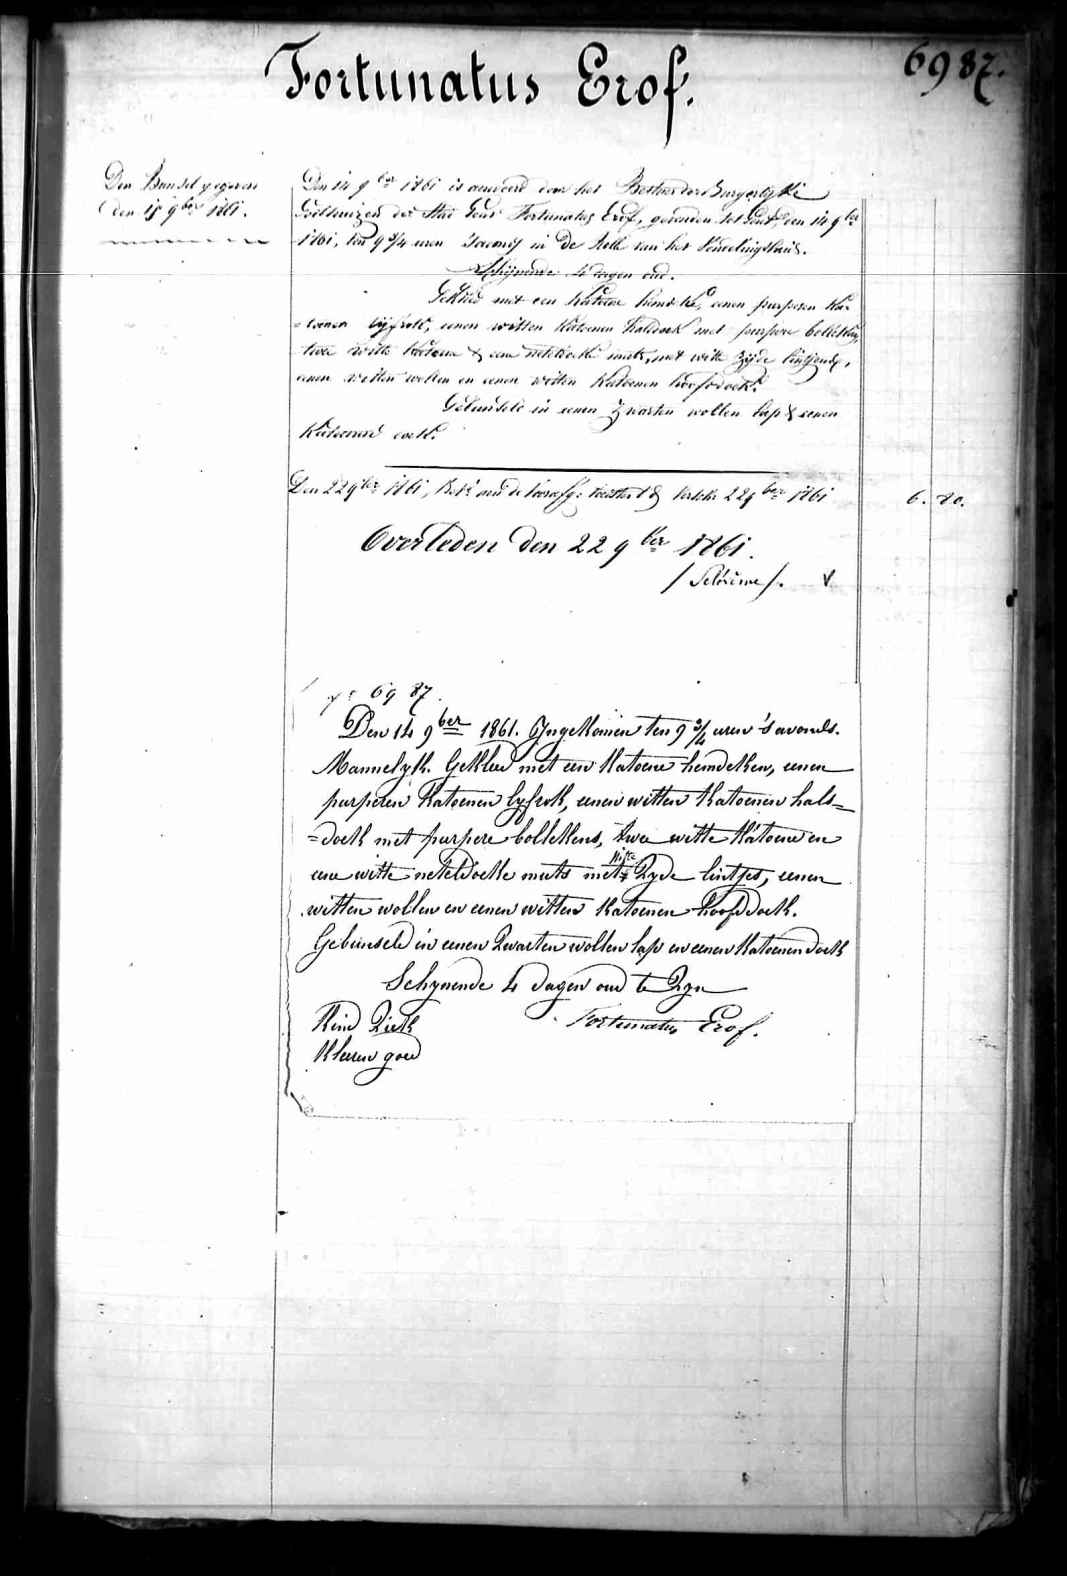 Fortunatus Erof.
6987.
Den Bunsel gegeven
den 15 9ber 1861.
Den 14 9ber 1861 is aenveerd door het Bestuer der Burgerlyke
Godshuizen der Stad Gent Fortunatus Erof, gevonden tot Gent, den 14 9ber
1861, ten 9 3/4 uren 'savonds in de Rolle van het Vondelingshuis.
Schijnende 4 dagen oud.
Gekleed met een Katoene hemdeke, eenen purperen Ka-
=toenen lyfrok, eenen witten Katoenen halsdoek met purpere bollekens,
twee witte katoene & eene neteldoeke muts, met witte zyde lintjens,
eenen witten wollen en eenen witten Katoenen hoofddoek.
Gebunseld in eenen zwarten wollen lap & eenen
Katoenen doek.
Den 22 9ber 1861, 22 9ber 1861
6. 80.
Overleden den 22 9ber 1861.
No 6987.
Den 14 9ber 1861. Ingekomen ten 9 3/4 uren 's avonds.
Mannelyk. Gekleed met een Katoene hemdeken, eenen
purperen Katoenen lyfrok, eenen witten Katoenen hals=
=doek met purpere bollekens, twee witte Katoene en
eene witte neteldoeke muts met witte Zyde lintjes, eenen
witten wollen en eenen witten Katoenen hoofddoek.
Gebunseld in eenen Zwarten wollen lap en eenen Katoenen doek
Schynende 4 dagen oud te Zyn
Kind Ziek
Fortunatus Erof.
Kleeren goed